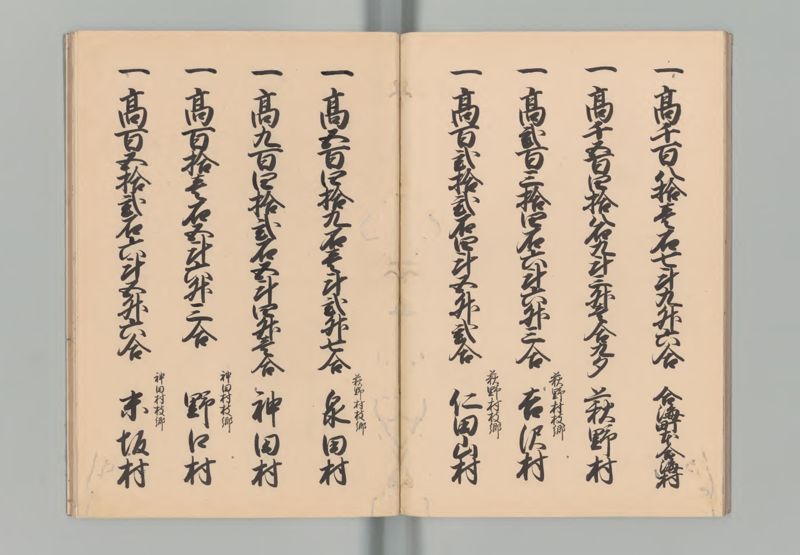 一 高千百八拾壱石七斗九升六合 合海町本合海村
一 高千五百四拾八石九斗三升壱合九夕 萩野村
萩野村枝郷
一 高弐百三拾四石六斗六升三合 吉沢村
萩野村枝郷
一 高百弐拾弐石四斗五升弐合 仁田山村
萩野村枝郷
一 高五百四拾九石壱斗弐升七合 泉田村
一 高九百四拾弐石五斗四升壱合 神田村
神田村枝郷
一 高百拾壱石五斗六升三合 野口村
神田村枝郷
一 高百五拾弐石六斗五升六合 末坂村